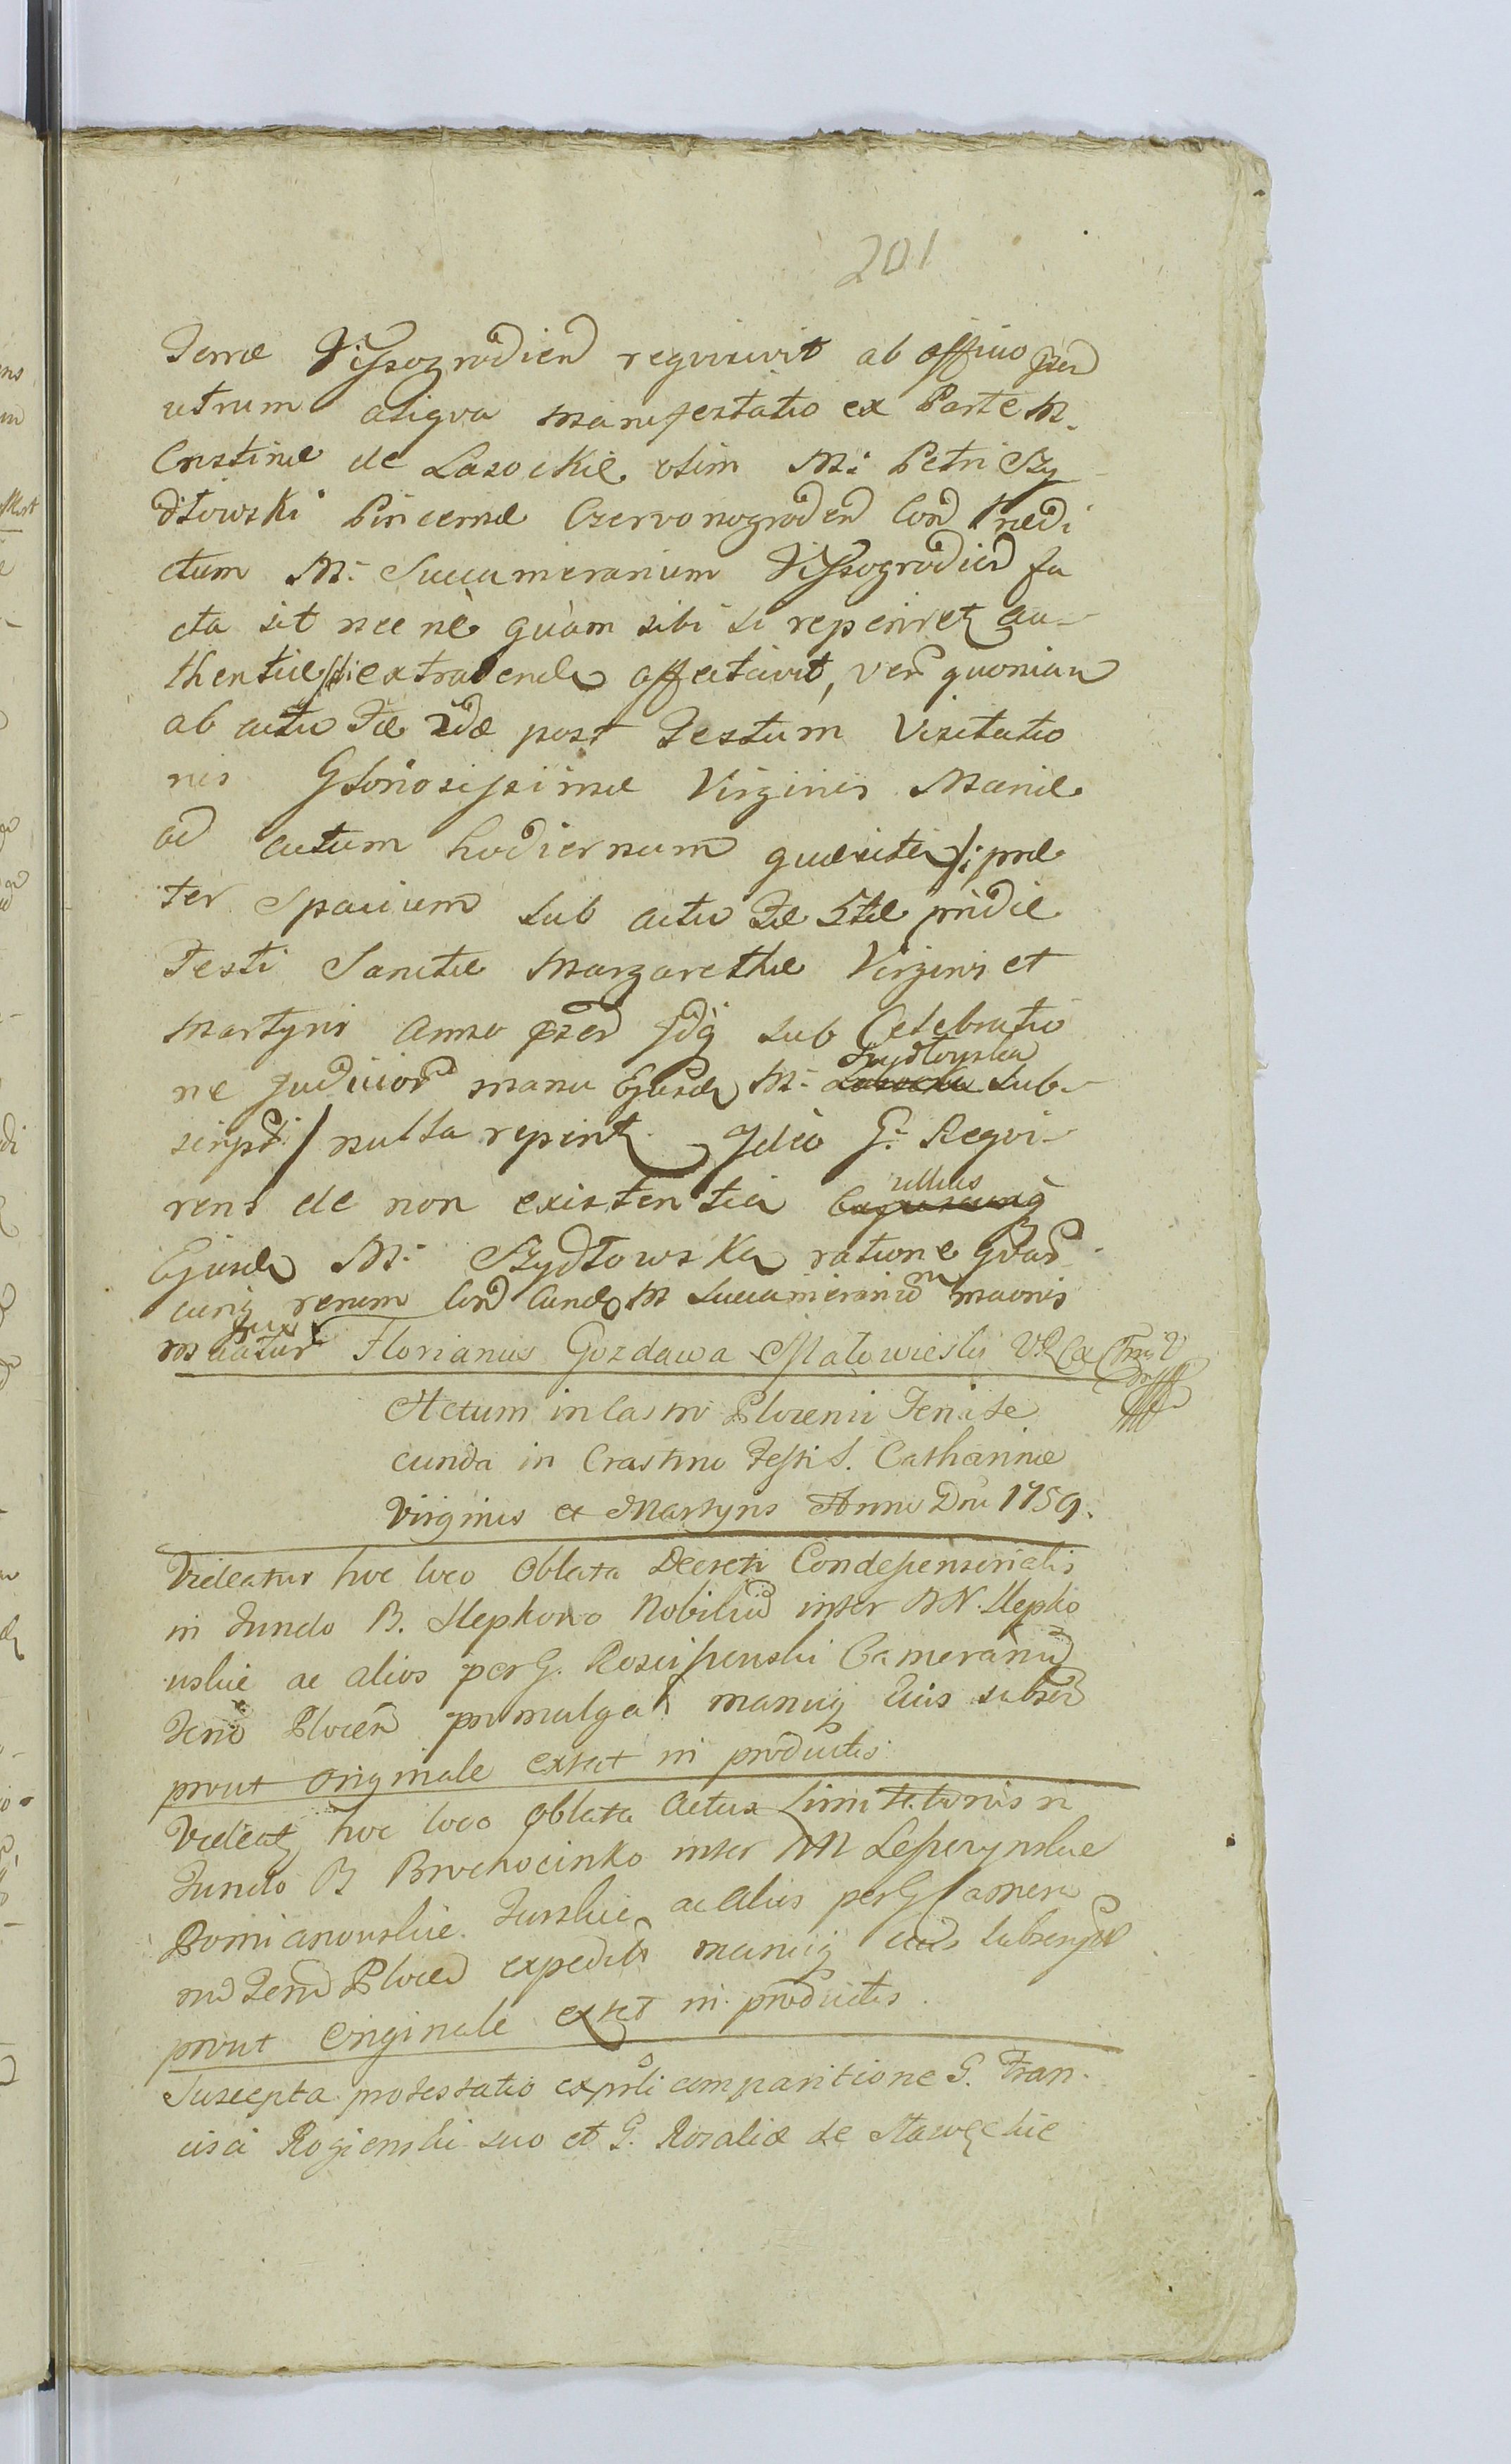 201
Terræ Vissogrodien requisivit ab officio pñ
utrum aliqva manifestatio ex Parte M.
Cristinæ de Lasockie olim M: Petri Szy
dłowski Pincernæ Czervonogroden Con Prædi
ctum M: Succamerarium Vissogrodien fa
cta sit nec nè qvàm sibi si reperiret au-
thentice extradendam affectavit, verum quoniam
ab actu Fæ 2dæ post Festum Visitatio
nis Gloriosissimæ Virginis Mariæ
ad actum hodiernum quæsita /: præ
ter Spacium sub actu Fæ 5tæ pridie
Festi Sanctæ Margarethæ Virginis et
Martyris Anno sub Celebratio
ne Judicior manu Ejusdem M: Lasocka Szydłowska sub-
script :/ nulla reperit. Ideo G: Reqvi-
rens de non existentia ullius
Ejusdem M: Szydłowska ratione qvar
cunq rerum Con Eundem M Succamerarium
Florianus Gozdawa Małowieski
Actum in Castro Plocensi Feria Se
cunda in Crastino Festi S. Catharinæ
Virginis et Martyris Anno Dni 1759.
Videatur hoc loco Oblata Decreti Condescensorialis
in Fundo B. Slepkowo Nobilium inter NN. Slepko
wskie ac alios per G. Rosciszewski Camerarium
Terræ Plocen promulgati manuq Ejus subscr
prout Originale extat in productis
Videat hoc loco Oblata Actus Limitationis in
Fundo B Brochocinko inter NN Lesczynskie
Domianowskie Turskie ac alios per G Camera
rium Terræ Plocen expediti manuq ejus subscript
prout Originale extat in productis.
Suscepta protestatio ex psli comparitione G. Fran-
cisci Rogienski suo et G. Rozaliæ de Nawęckie